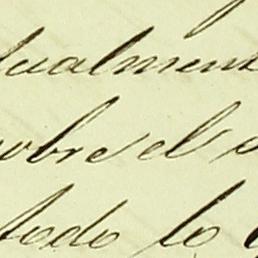 tualment
sobre el
todo lo